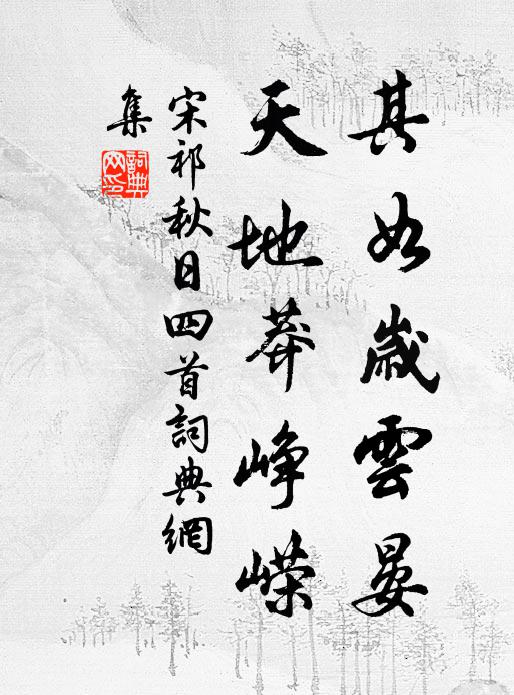 其如歲雲晏
天地莽崢嶸
宋祁秋日四首詞典網
集
詞典網印